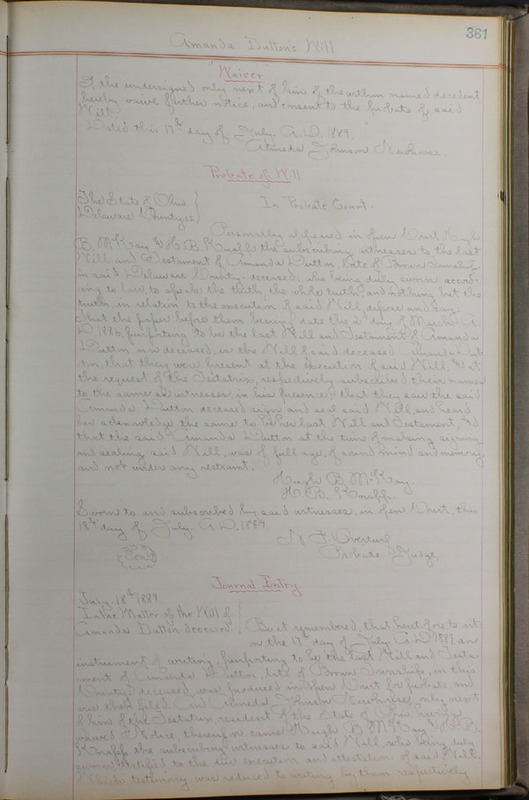 361
Amanda Dutton's Will
"Waiver"
I, the undersigned only next of kin of the within named decedent
hereby waive further notice, and consent to the probate of said
Will.
Dated this 17th day of July A.D. 1889.
Johnson
Probate of Will
The State of Ohio }
Delaware County ss }
In Probate Court.
Personally appeared in open Court Hugh
B. McKay & H. B. the subscribing witnesses to the last
Will and Testament of Amanda Dutton, late of Brown Township,
in said Delaware County, deceased, who being duly sworn accord-
ing to law, to speak the truth, the whole truth, and nothing but the
truth, in relation to the execution of said Will, depose and say:
that the paper before them bearing date the day of March A.
D. purporting to be the last Will and Testament of Amanda
Dutton now deceased, is the Will of said deceased
that they were present at the execution of said Will, and at
the request of the Testatrix, respectively subscribed their names
to the same as witnesses in his presence; that they saw the said
Amanda Dutton deceased sign and seal said Will, and heard
her acknowledge the same to be her last Will and Testament, and
that the said Amanda Dutton at the time of making, signing,
and sealing said Will, was of full age, of sound mind and memory
and not under any restraint.
Hugh B. McKay
H. B.
Sworn to and subscribed by said witnesses, in open Court, this
18th day of July A.D. 1889.
Seal
Probate Judge
Journal Entry
July 18th 1889.
In the Matter of the Will of
Amanda Dutton deceased.
Be it remembered, that heretofore to wit
on the 17th day of July A.D. 1889, an
instrument of writing, purporting to be the last Will and Testa-
ment of Amanda Dutton, late of Brown Township, in this
County, deceased, was produced in open Court for probate and
was then filed. And Johnson only next
of kin of the Testatrix, resident of the State of Ohio, having
waived notice, thereupon came Hugh B. McKay & H. B.
the subscribing witnesses to said Will, who being duly
sworn testified to the due execution and attestation of said Will.
Which testimony was reduced to writing by them respectively